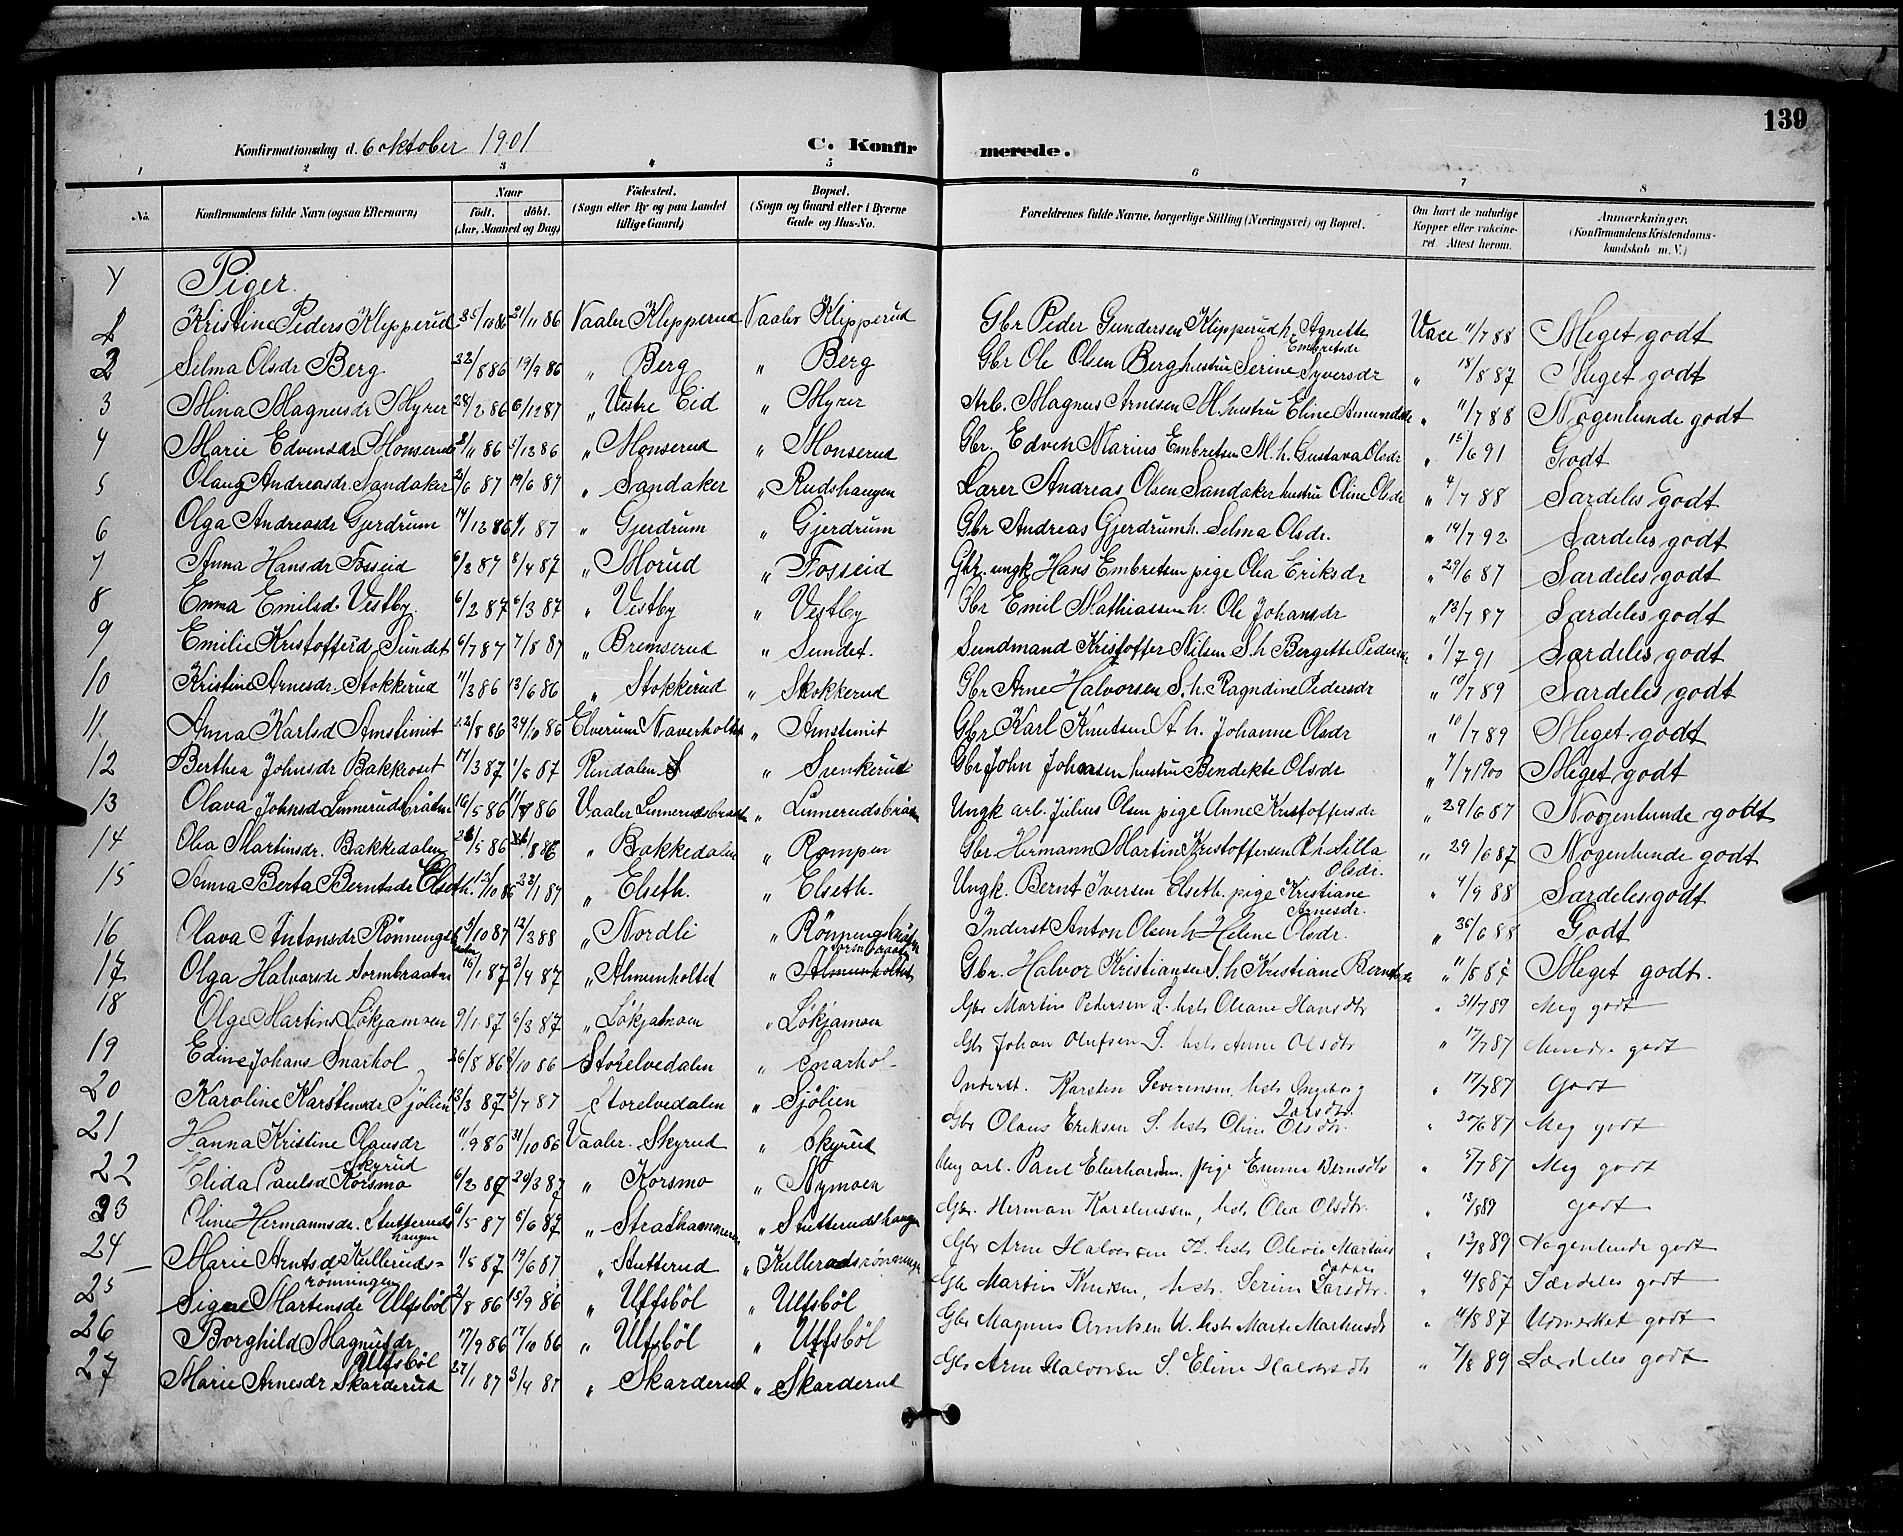 139
Konfirmationsdag d. 6 oktober 1901 C. Konfirmerede.
1 2 3 4 5 6 7 8
No. Konfirmandens fulde Navn (ogsaa Efternavn) Naar født. døbt. (Aar, Maaned og Dag) Fødested. (Sogn eller By og paa Landet tillige Gaard) Bopæl. (Sogn og Gaard eller i Byerne Gade og Hus-No. Forældrenes fulde Navne, borgerlige Stilling (Næringsvei) og Bopæl. Om havt de naturlige Kopper eller vakcineret. Attest herom. Anmærkninger. (Konfirmandens Kristendomskundskab m. V.)
Piger.
1 Kristine Peders Klipperud 25/10 86 21/11 86 Vaaler Klipperud Vaaler Klipperud Gbr Peder Gundersen Klipperud h. Agnette Embretsdr Vace 11/7 88 Meget godt
2 Selma Olsdr Berg 22/8 86 19/9 86 " Berg " Berg Gbr Ole Olsen Berg hustru Serine Syversdr " 18/8 87 Meget godt
3 Mina Magnusdr Myrer 28/2 86 6/12 87 " Vestre Eid " Myrer Arb. Magnus Arnesen M. hustru Eline Amundsdr " 11/7 88 Nogenlunde godt
4 Marie Edvinsdr Monserud /11 86 /12 86 " Monserud " Monserud Gbr. Edvin Marius Embretsen M. h. Gustava Olsdr " 15/6 91 Godt
5 Olaug Andreasdr. Sandaker 2/6 87 19/6 87 " Sandaker " Rudshaugen Lærer Andreas Olsen Sandaker hustru Oline Olsdr " 4/7 88 Særdeles Godt
6 Olga Andreasdr Gjerdrum 17/12 86 /1 87 " Gjerdrum " Gjerdrum Gbr Andreas Gjerdrum h. Selma Olsdr. " 14/7 92 Særdeles godt
7 Anna Hansdr Fosseid 6/2 87 8/4 87 " Morud " Fosseid Gbr. ungk Hans Embretsen pige Olea Eriksdr " 29/6 87 Særdeles godt
8 Emma Emilsd. Vestby 6/2 87 6/3 87 " Vestby " Vestby Gbr Emil Mathiassen h. Ole Johansdr " 13/7 87 Særdeles godt
9 Emilie Kristoffersd Sundet 6/7 87 7/8 87 " Bremserud " Sundet. Sundmand Kristoffer Nilsen S. h Bergette Pedersdr " 1/7 91 Særdeles godt
10 Kristine Arnesdr. Stokkerud 11/3 86 13/6 86 " Stokkerud " Skokkerud Gbr Arne Halvorsen S. h. Ragndine Pedersdr " 10/7 89 Særdeles godt
11. Anna Karlsd Arnstimit 22/8 86 24/10 86 Elverum Naverholtet " Arnstimit Gbr Karl Knutsen A. h. Johanne Olsdr " 10/7 89 Meget godt
12 Berthea Johnsdr Bakkroset 17/3 87 1/6 87 Rendalen S " Svenkerud Gbr John Johansen hustru Bendikte Olsdr " 7/7 1900 Meget godt
13 Olava Johnsd Linnerudsbråten 16/5 86 11/7 86 Vaaler Linnerudsbraaten " Linnerudsbråten Ungk arb. Julius Olsen pige Anne Kristoffersdr " 29/6 87 Nogenlunde godt
14 Olea Martinsdr. Bakkedalen 26/5 86 /8 86 " Bakkedalen " Rompen Gbr Hermann Martin Kristoffersen R h Silla Olsdr. " 29/6 87 Nogenlunde godt
15 Anna Berta Berntsdr Elseth. 12/10 86 23/1 87 " Elseth. " Elseth. Ungk. Bernt Iversen Elseth. pige Kristiane Arnesdr. " 4/9 88 Særdeles godt
16 Olava Antonsdr Rönningsbraaten 5/10 87 12/3 88 " Nordli " Rönningsbråten Inderst Anton Olsen h Helene Olsdr. " 26/6 88 Godt
17 Olga Halvorsdr Sormbraaten 16/1 87 3/4 87 " Almenholtet " Almenholtet Sormbraaten Gbr. Halvor Kristiansen S. h Kristiane Berntsdr " 11/8 8 Meget godt.
18 Olge Martins Lökjamoen 9/1 87 6/3 87 " Lökjamoen " Lökjamoen Gbr Martin Pedersen L. hstr Oleane Hansdtr " 31/7 89 Meg godt
19 Edine Johans Snarhol 26/8 86 /10 86 Storelvedalen " Snarhol Gbr Johan Olufsen S. hstr Anne Olsdtr " 17/7 87 Mindr. godt
20 Karoline Karstensdr Sjölien 13/3 87 5/7 87 Storelvedalen " Sjölien Inderst. Karsten Severinsen hstr Ingeborg Larsdtr. " 17/7 87 Godt
21 Hanna Kristine Olausdr Skyrud 11/9 86 31/10 86 Vaaler. Skyrud " Skyrud Gbr Olaus Eriksen S. hstr Oline Olsdtr. " 30/6 87 Meg godt
22 Elida Paulsd Korsmo 6/2 87 20/3 87 " Korsmo " Nymoen Ung arb. Paul Eberhardsen. pige Emma Berntsdtr " 5/7 87 Meg godt
23 Oline Hermannsdr. Stutterudshaugen 6/5 87 5/6 87 " Stradhammeren " Stutterudshaugen Gbr. Herman Karstenssen, hstr. Olea Olsdtr. " 13/8 89 godt
24 Marie Arntsd Kullerudsrönningen 1/5 87 19/6 87 " Stutterud " Kullerudsrönningen Gbr. Arne Halvorsen K. hstr Olivia Martins datter " 12/8 89 Nogenlunde godt
25 Signe Martensdr Ulfsböl 2/8 86 15/9 86 " Ulfsböl " Ulfsböl Gbr Martin Knudsen, hstr. Serine Larsdtr. " 4/8 87 Særdeles godt
26 Borghild Magnusdr Ulfsböl 17/9 86 17/10 86 " Ulfsböl " Ulfsböl Gbr Magnus Arntsen U. hstr Marte Martinsdr " 4/8 87 Udmerket godt
27 Marie Arnesdr Skarderud 27/1 87 3/4 87 " Skarderud " Skarderud Gbr Arne Halvorsen S. Eline Halvorsdtr " 7/8 89 Særdeles godt